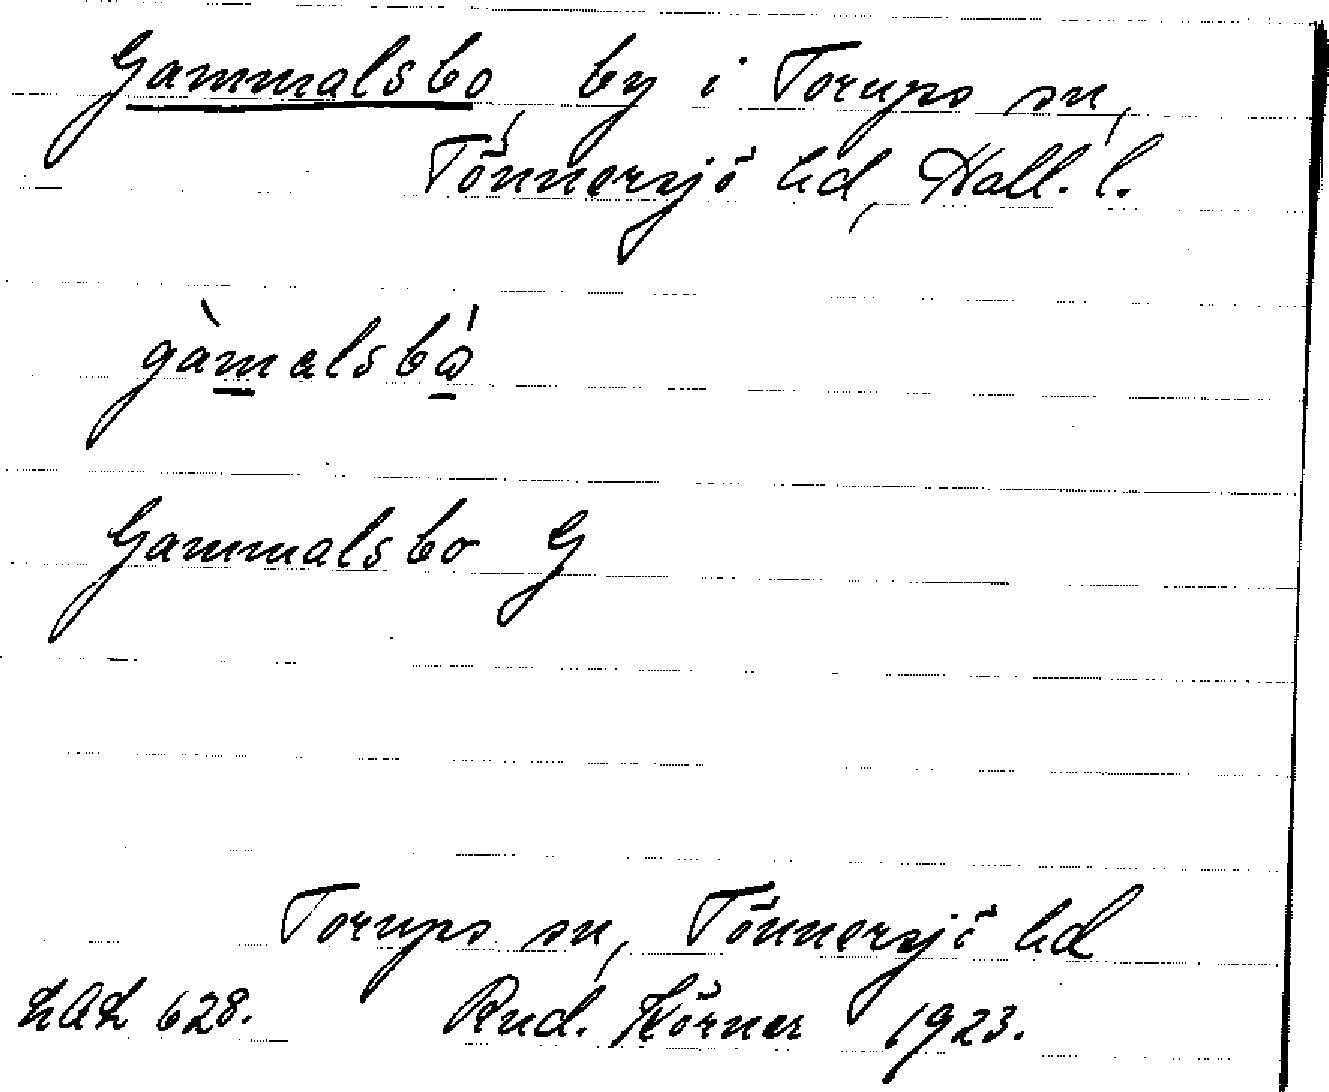 Gammalsbo, by i Torups sn,
Tönnersjö hd, Hall. l.
gàmalsbǻ
Gammalsbo G
Torups sn, Tönnersjö hd
LAL 628. Rud. Körner 1923.